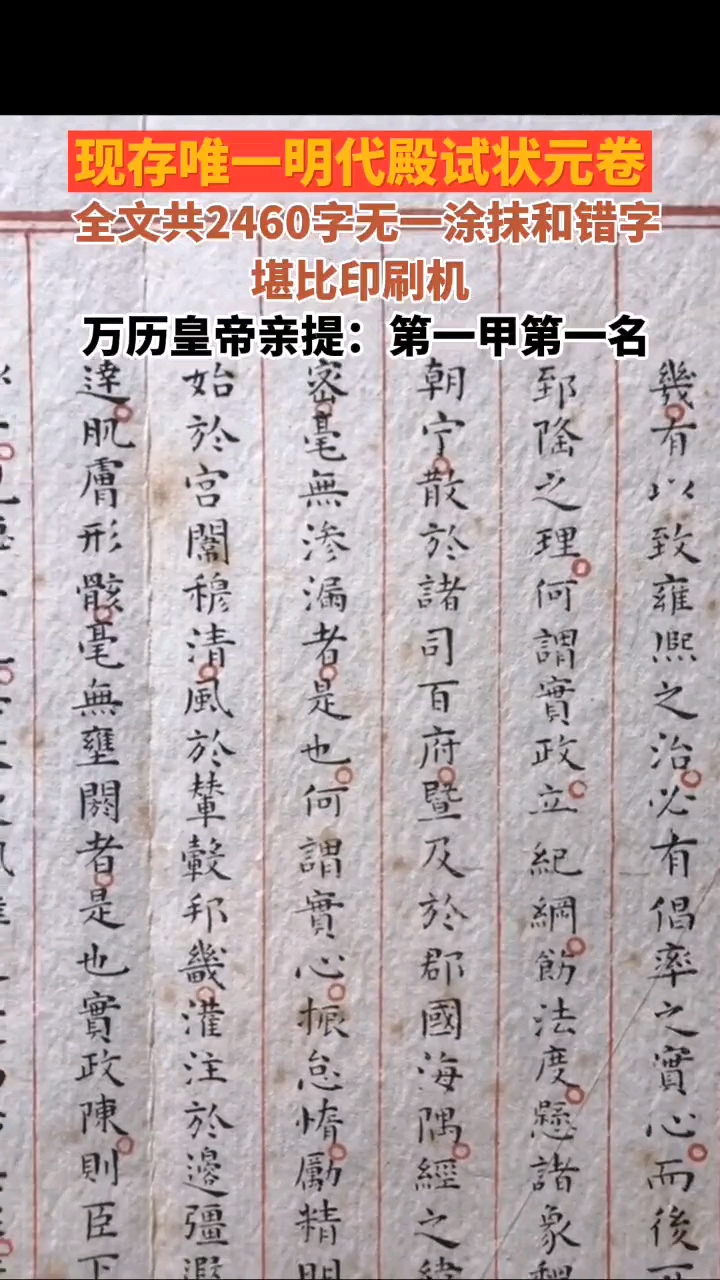 现存唯一明代殿试状元卷
全文共2460字无一涂抹和错字
堪比印刷机
万历皇帝亲提：第一甲第一名
幾有以致雍熙之治必有倡率之實心而後
郅隆之理何謂實政立紀綱飭法度懸諸象
朝宁散於諸司百府暨及於郡國海隅經之
密毫無滲漏者是也何謂實心振怠惰勵精
始於宮闈穆清風於輦轂邦畿灌注於邊疆
達肌膚形骸毫無壅閼者是也實政陳則臣